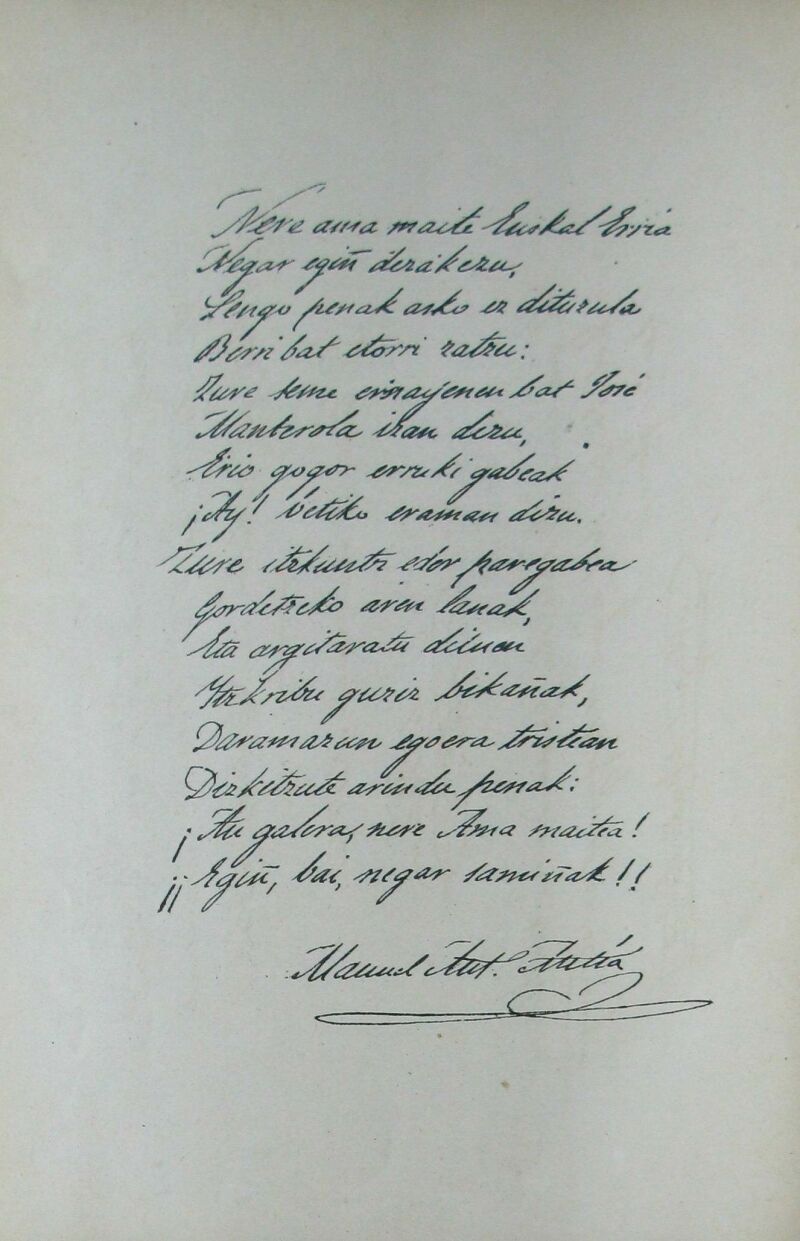 Nere ama maite Euskal Erria
Negar egiñ dezakezu,
Lengo penak asko ez dituzula
Berri bat etorri zatzu:
Zure seme ernayenen bat José
Manterola izan dezu,
Erio gogor erruki gabeak
¡Ay! betiko eraman dizu.
Zure itzkuntz eder paregabea
Gordetzeko aren lanak,
Eta argitaratu dituen
Itzkribu guziz bikañak,
Daramazun egoera tristean
Dizkitzute arindu penak:
¡Au galera, nere Ama maitea!
¡¡Egiñ, bai, negar samiñak!!
Manuel Ant.º Antiá